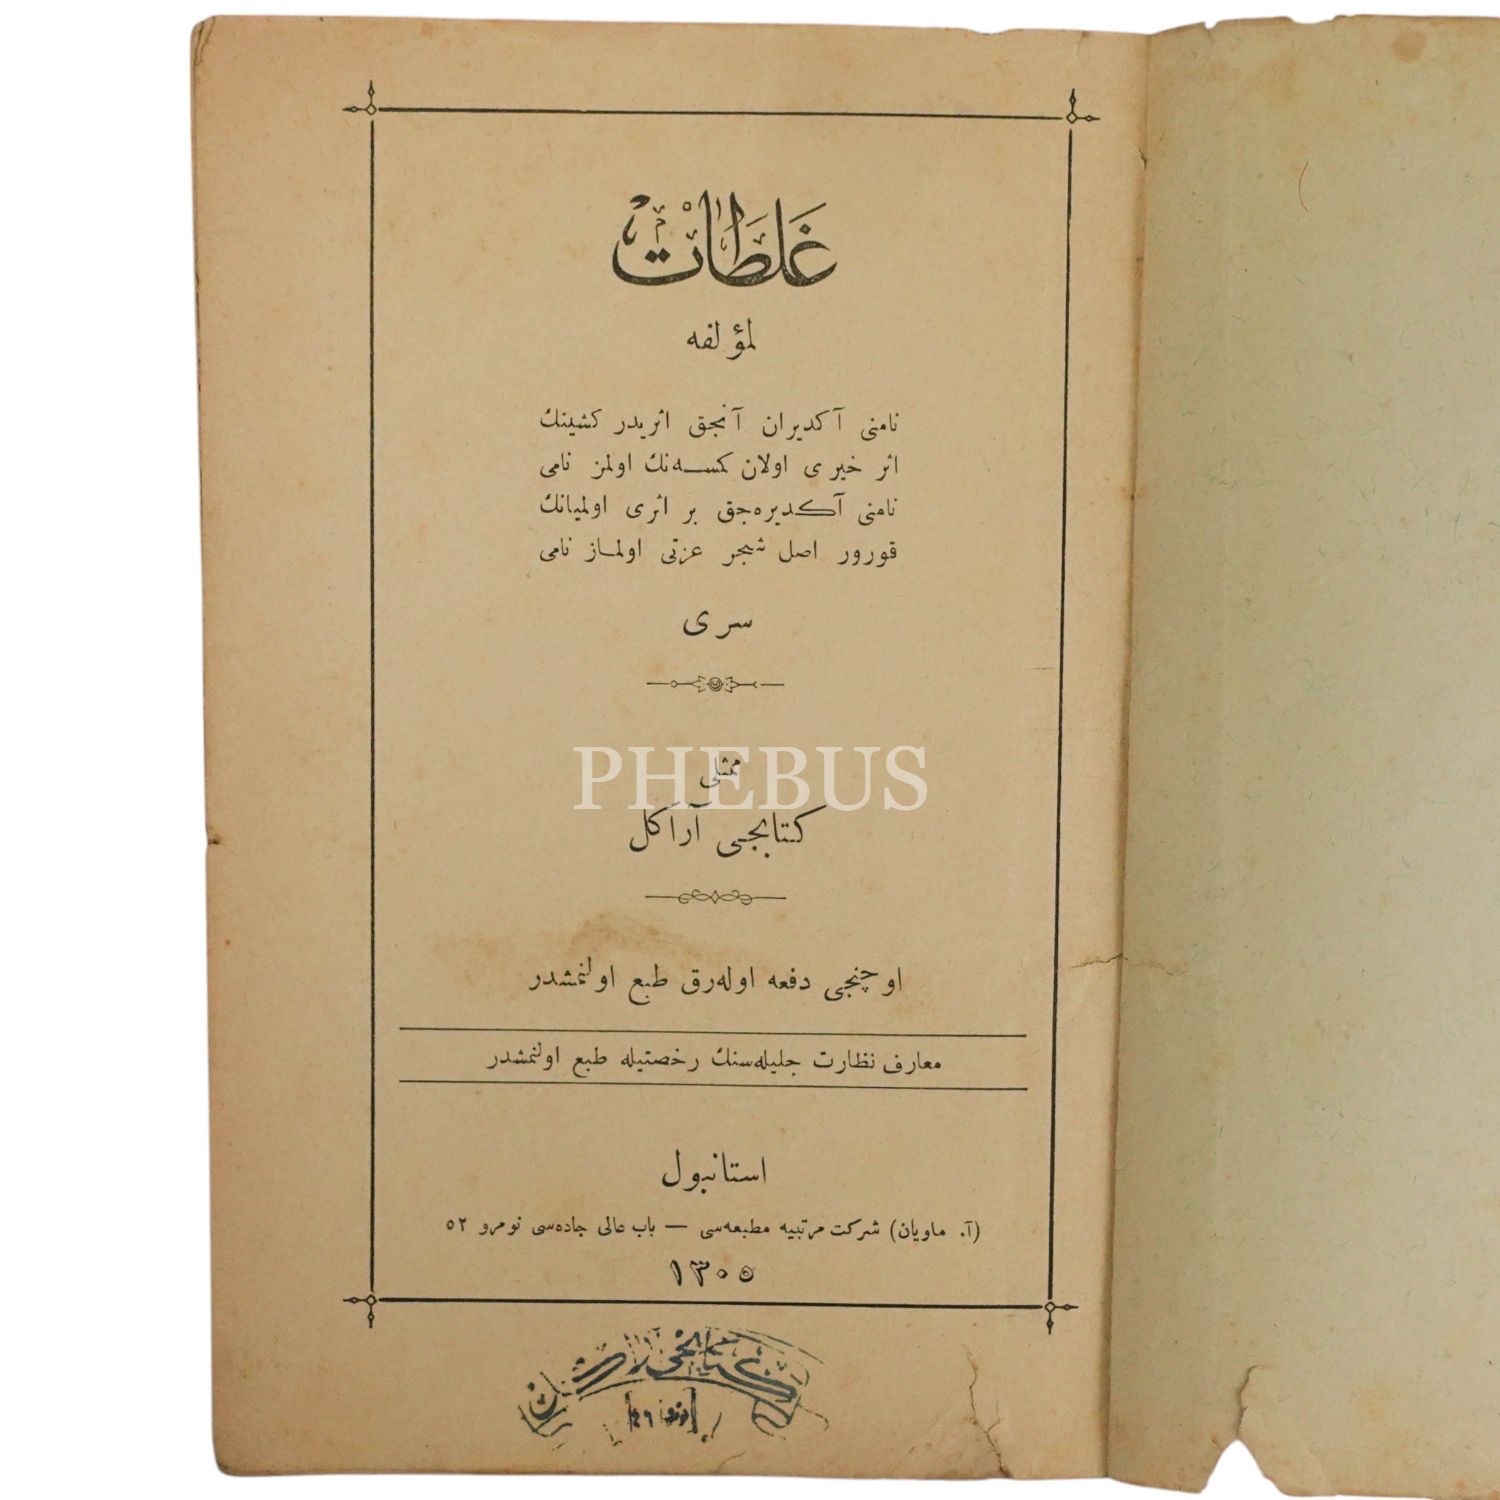 غَلَطَاتْ
لمؤلفه
نامنی آكدیران آنجق اثریدر كشینك
اثر خیری اولان كمسه‌نك اولمز نامی
نامنی آكدیره‌جق بر اثری اولمیانك
قورور اصل شجر عزتی اولماز نامی
سری
ممثلی
PHEBUS
كتابجی آراكل
اوچنجی دفعه اوله‌رق طبع اولنمشدر
معارف نظارت جلیله‌سنك رخصتیله طبع اولنمشدر
استانبول
(آ. ماویان) شركت مرتبیه مطبعه‌سی — باب عالی جاده‌سی نومرو ٥٢
١٣٠٥